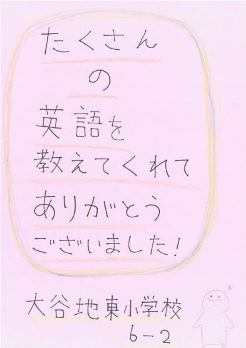 たくさん
の
英語を
教えてくれて
ありがとう
ございました!
大谷地東小学校
6-2